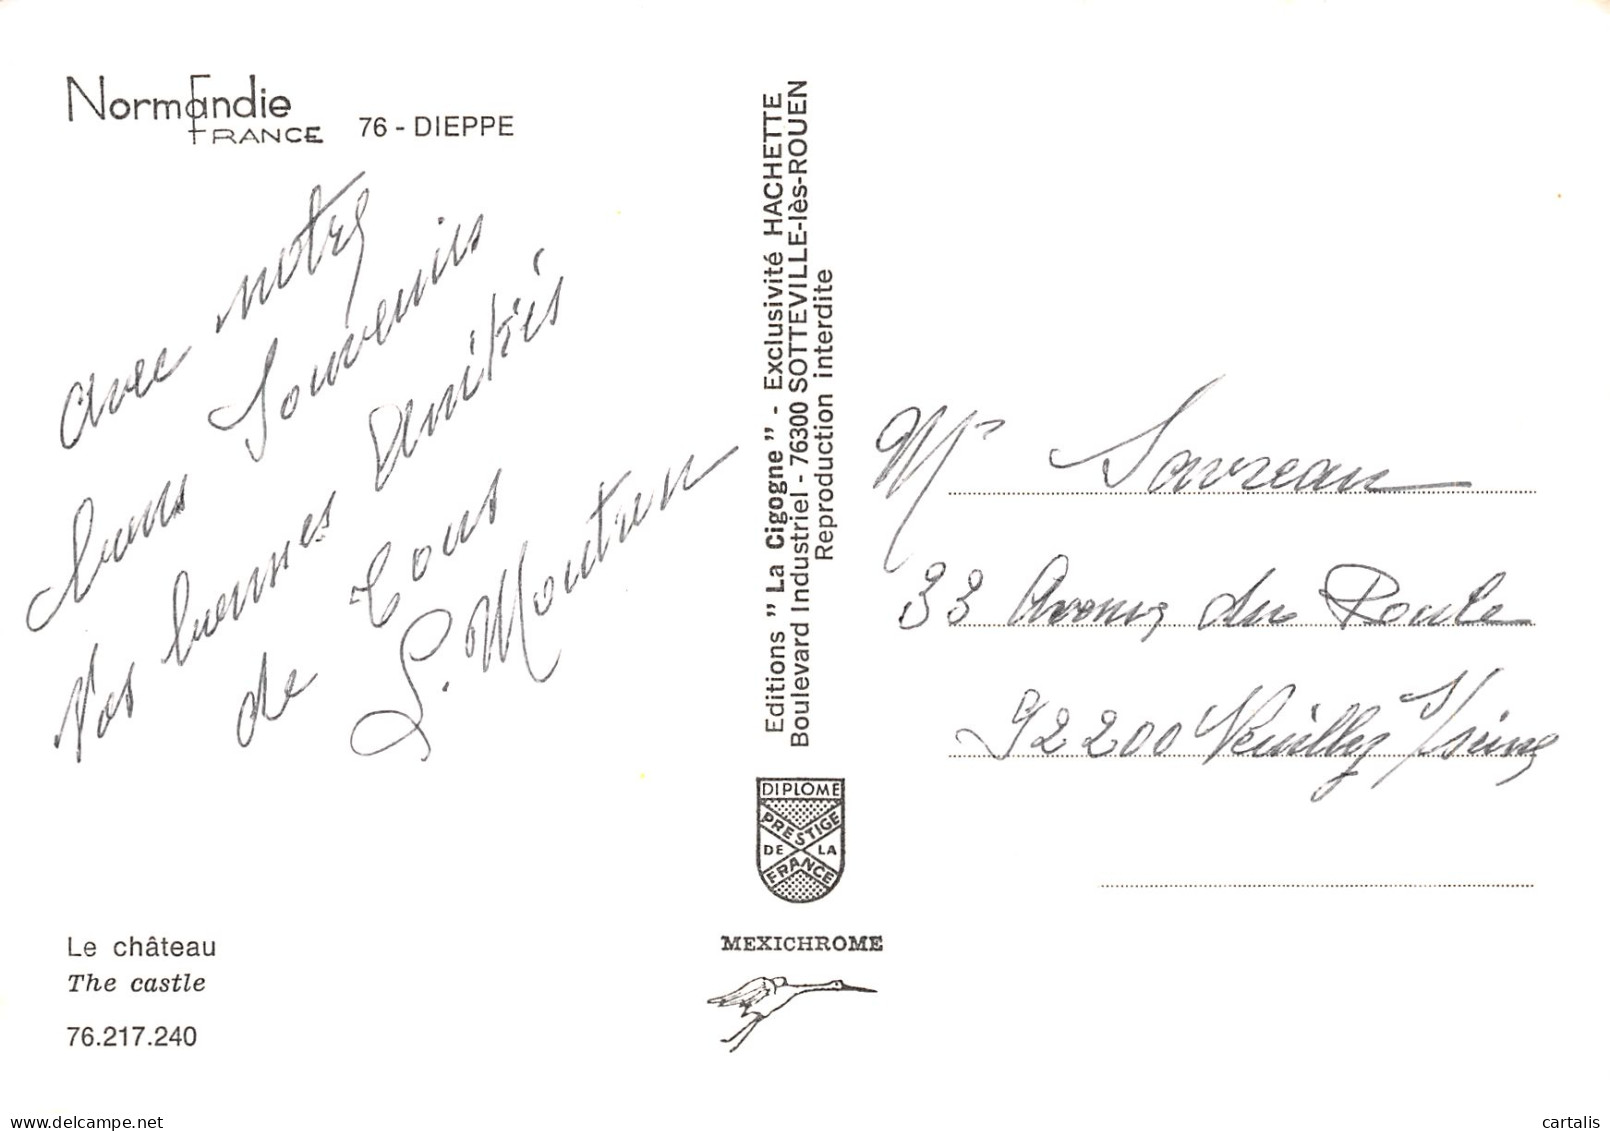 Normandie
FRANCE 76 - DIEPPE
avec notre
Souvenirs
bons
amitiés
Nos bonnes
Tous
de
S. Moutren
Editions " La Cigogne " - Exclusivité HACHETTE
Boulevard Industriel - 76300 SOTTEVILLE-lès-ROUEN
Reproduction interdite
Mr Savreau
33 Avenue du Roule
92200 Neuilly s/seine
DIPLOME
PRESTIGE
DE LA
FRANCE
MEXICHROME
Le château
The castle
76.217.240
delcampe.net
cartalis